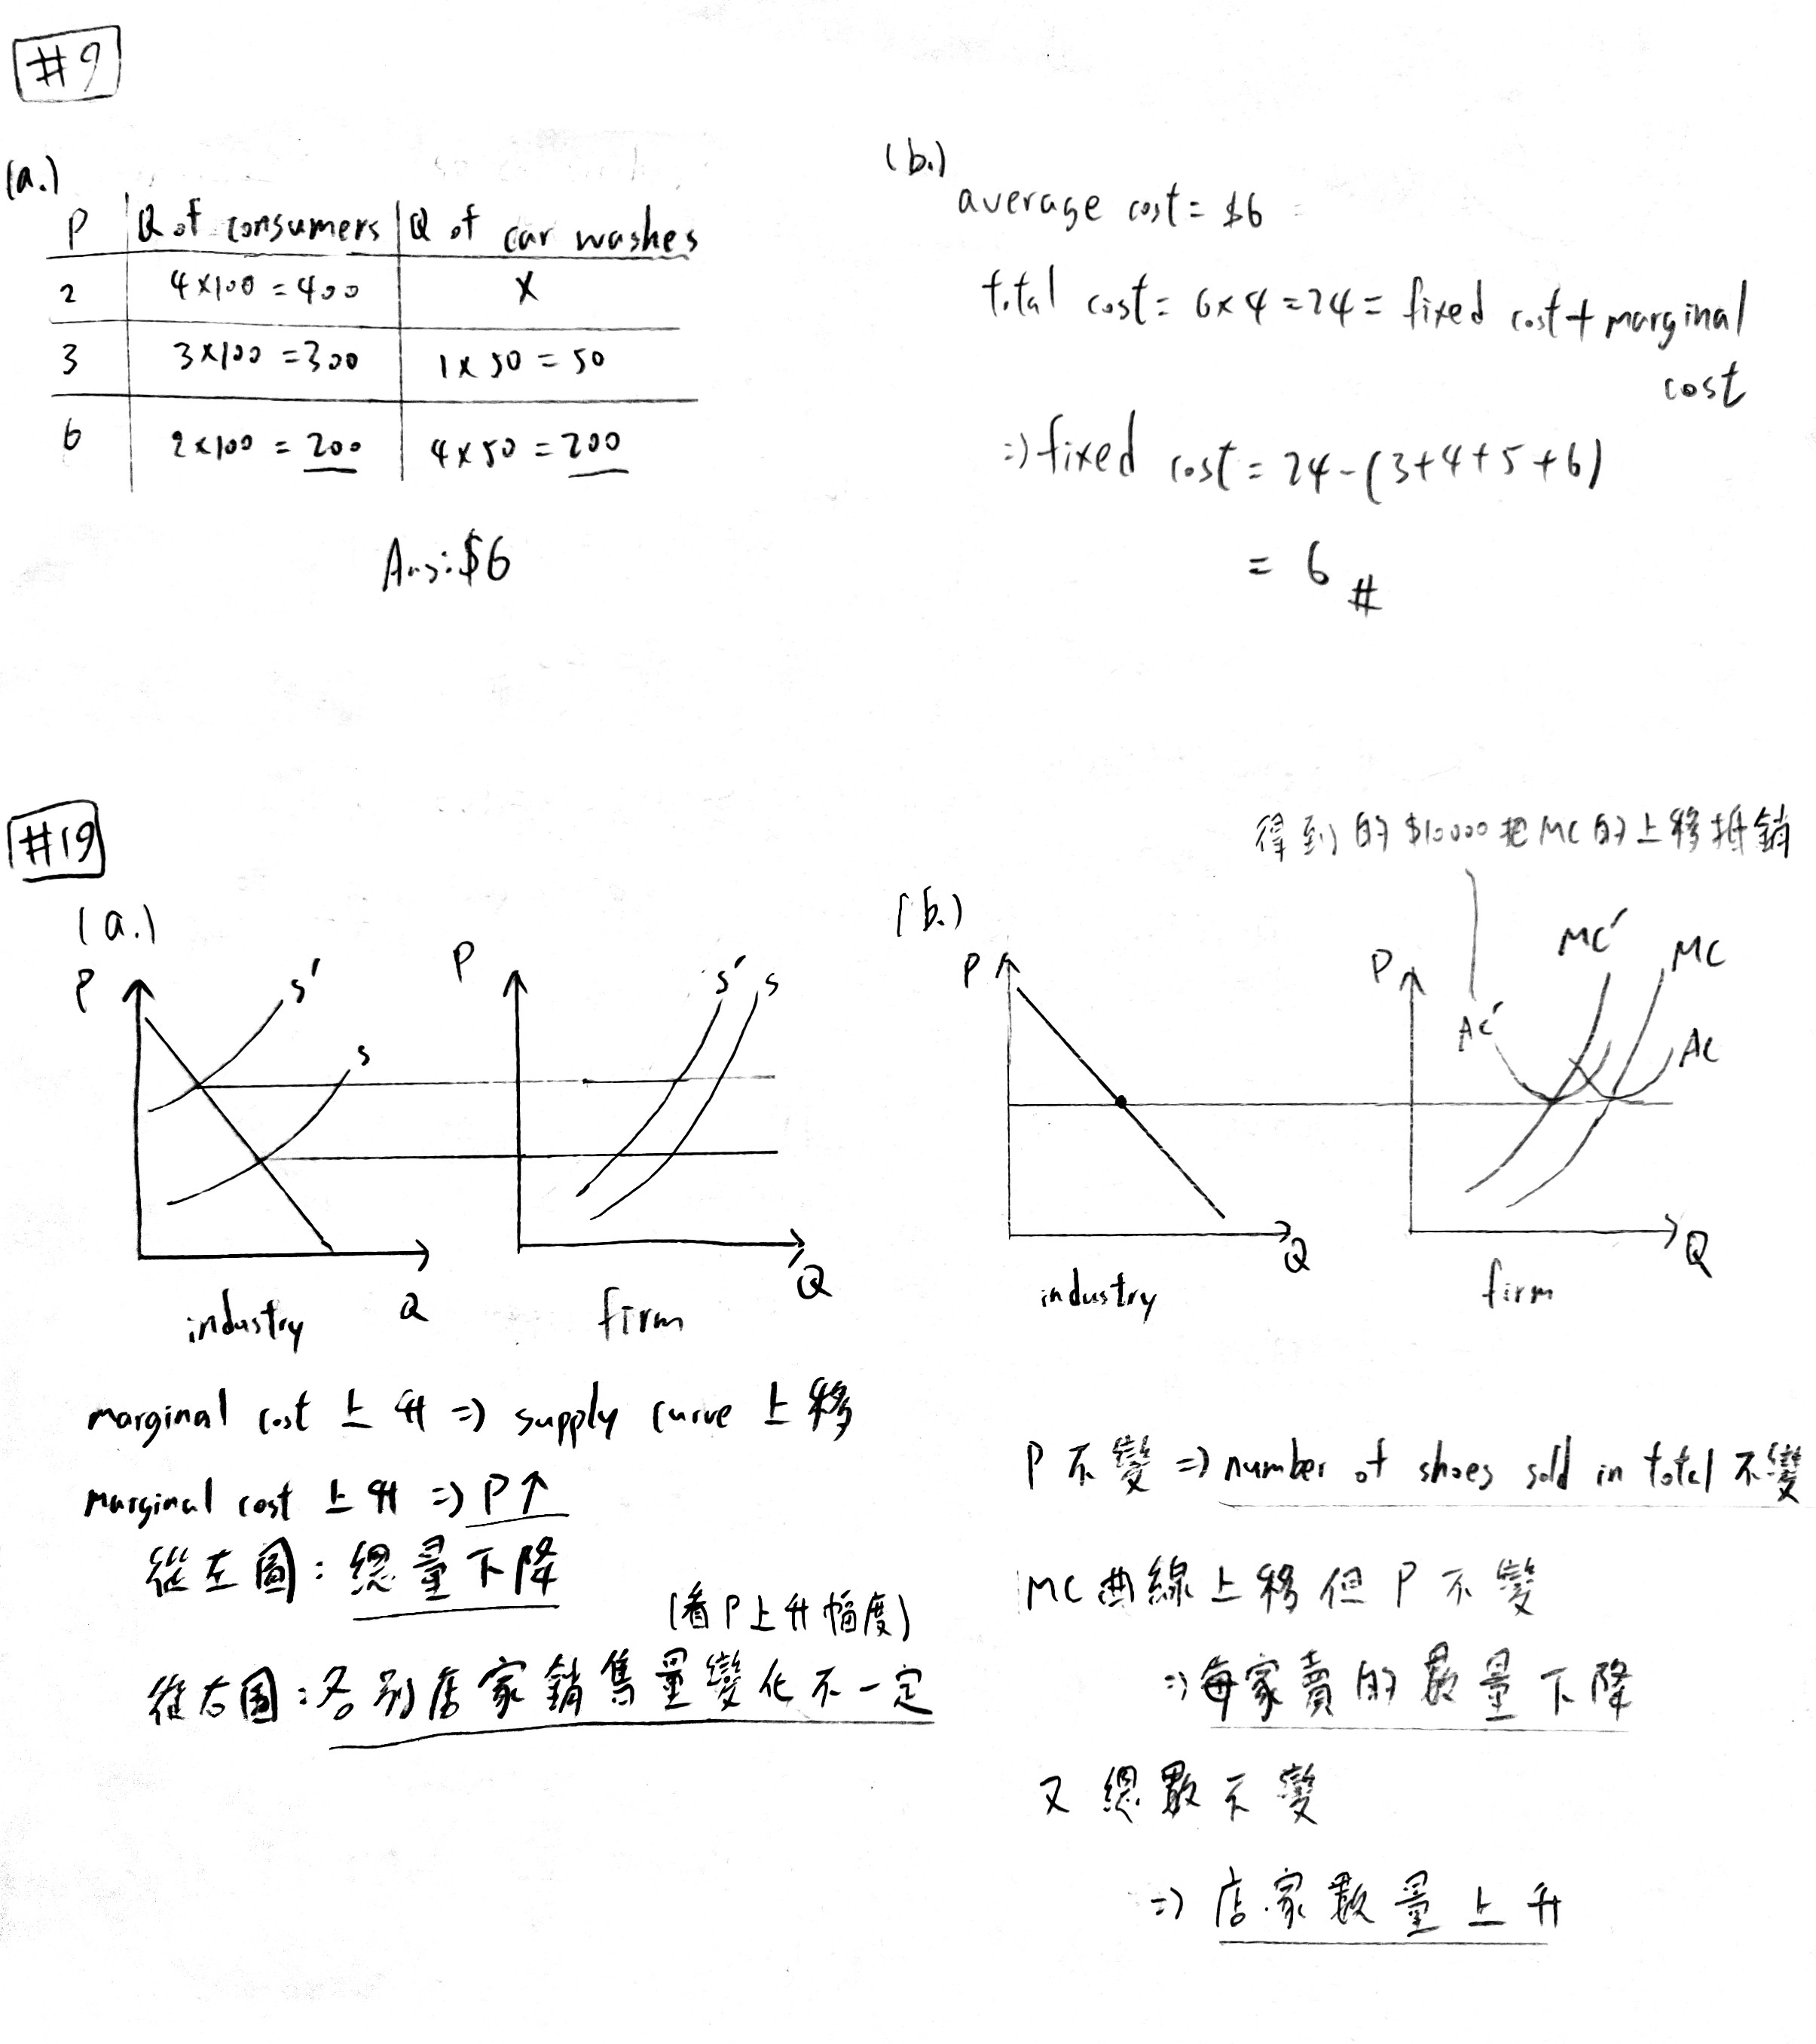 #9
(a.)
P Q of consumers Q of car washes
2 4×100=400 X
3 3×100=300 1×50=50
6 2×100=200 4×50=200
Ans:$6
(b.)
average cost=$6
total cost=6×4=24=fixed cost+marginal
cost
⇒fixed cost=24-(3+4+5+6)
=6 #
#19
(a.)
P S' S
Q
industry
P S' S
Q
firm
marginal cost 上升⇒supply curve 上移
marginal cost 上升⇒P↑
從左圖:總量下降
(看P上升幅度)
從右圖:各別店家銷售量變化不一定
得到的$10000把MC的上移抵銷
(b.)
P
Q
industry
P AC' MC' MC AC
Q
firm
P不變⇒number of shoes sold in total不變
MC曲線上移但P不變
⇒每家賣的數量下降
又總數不變
⇒店家數量上升